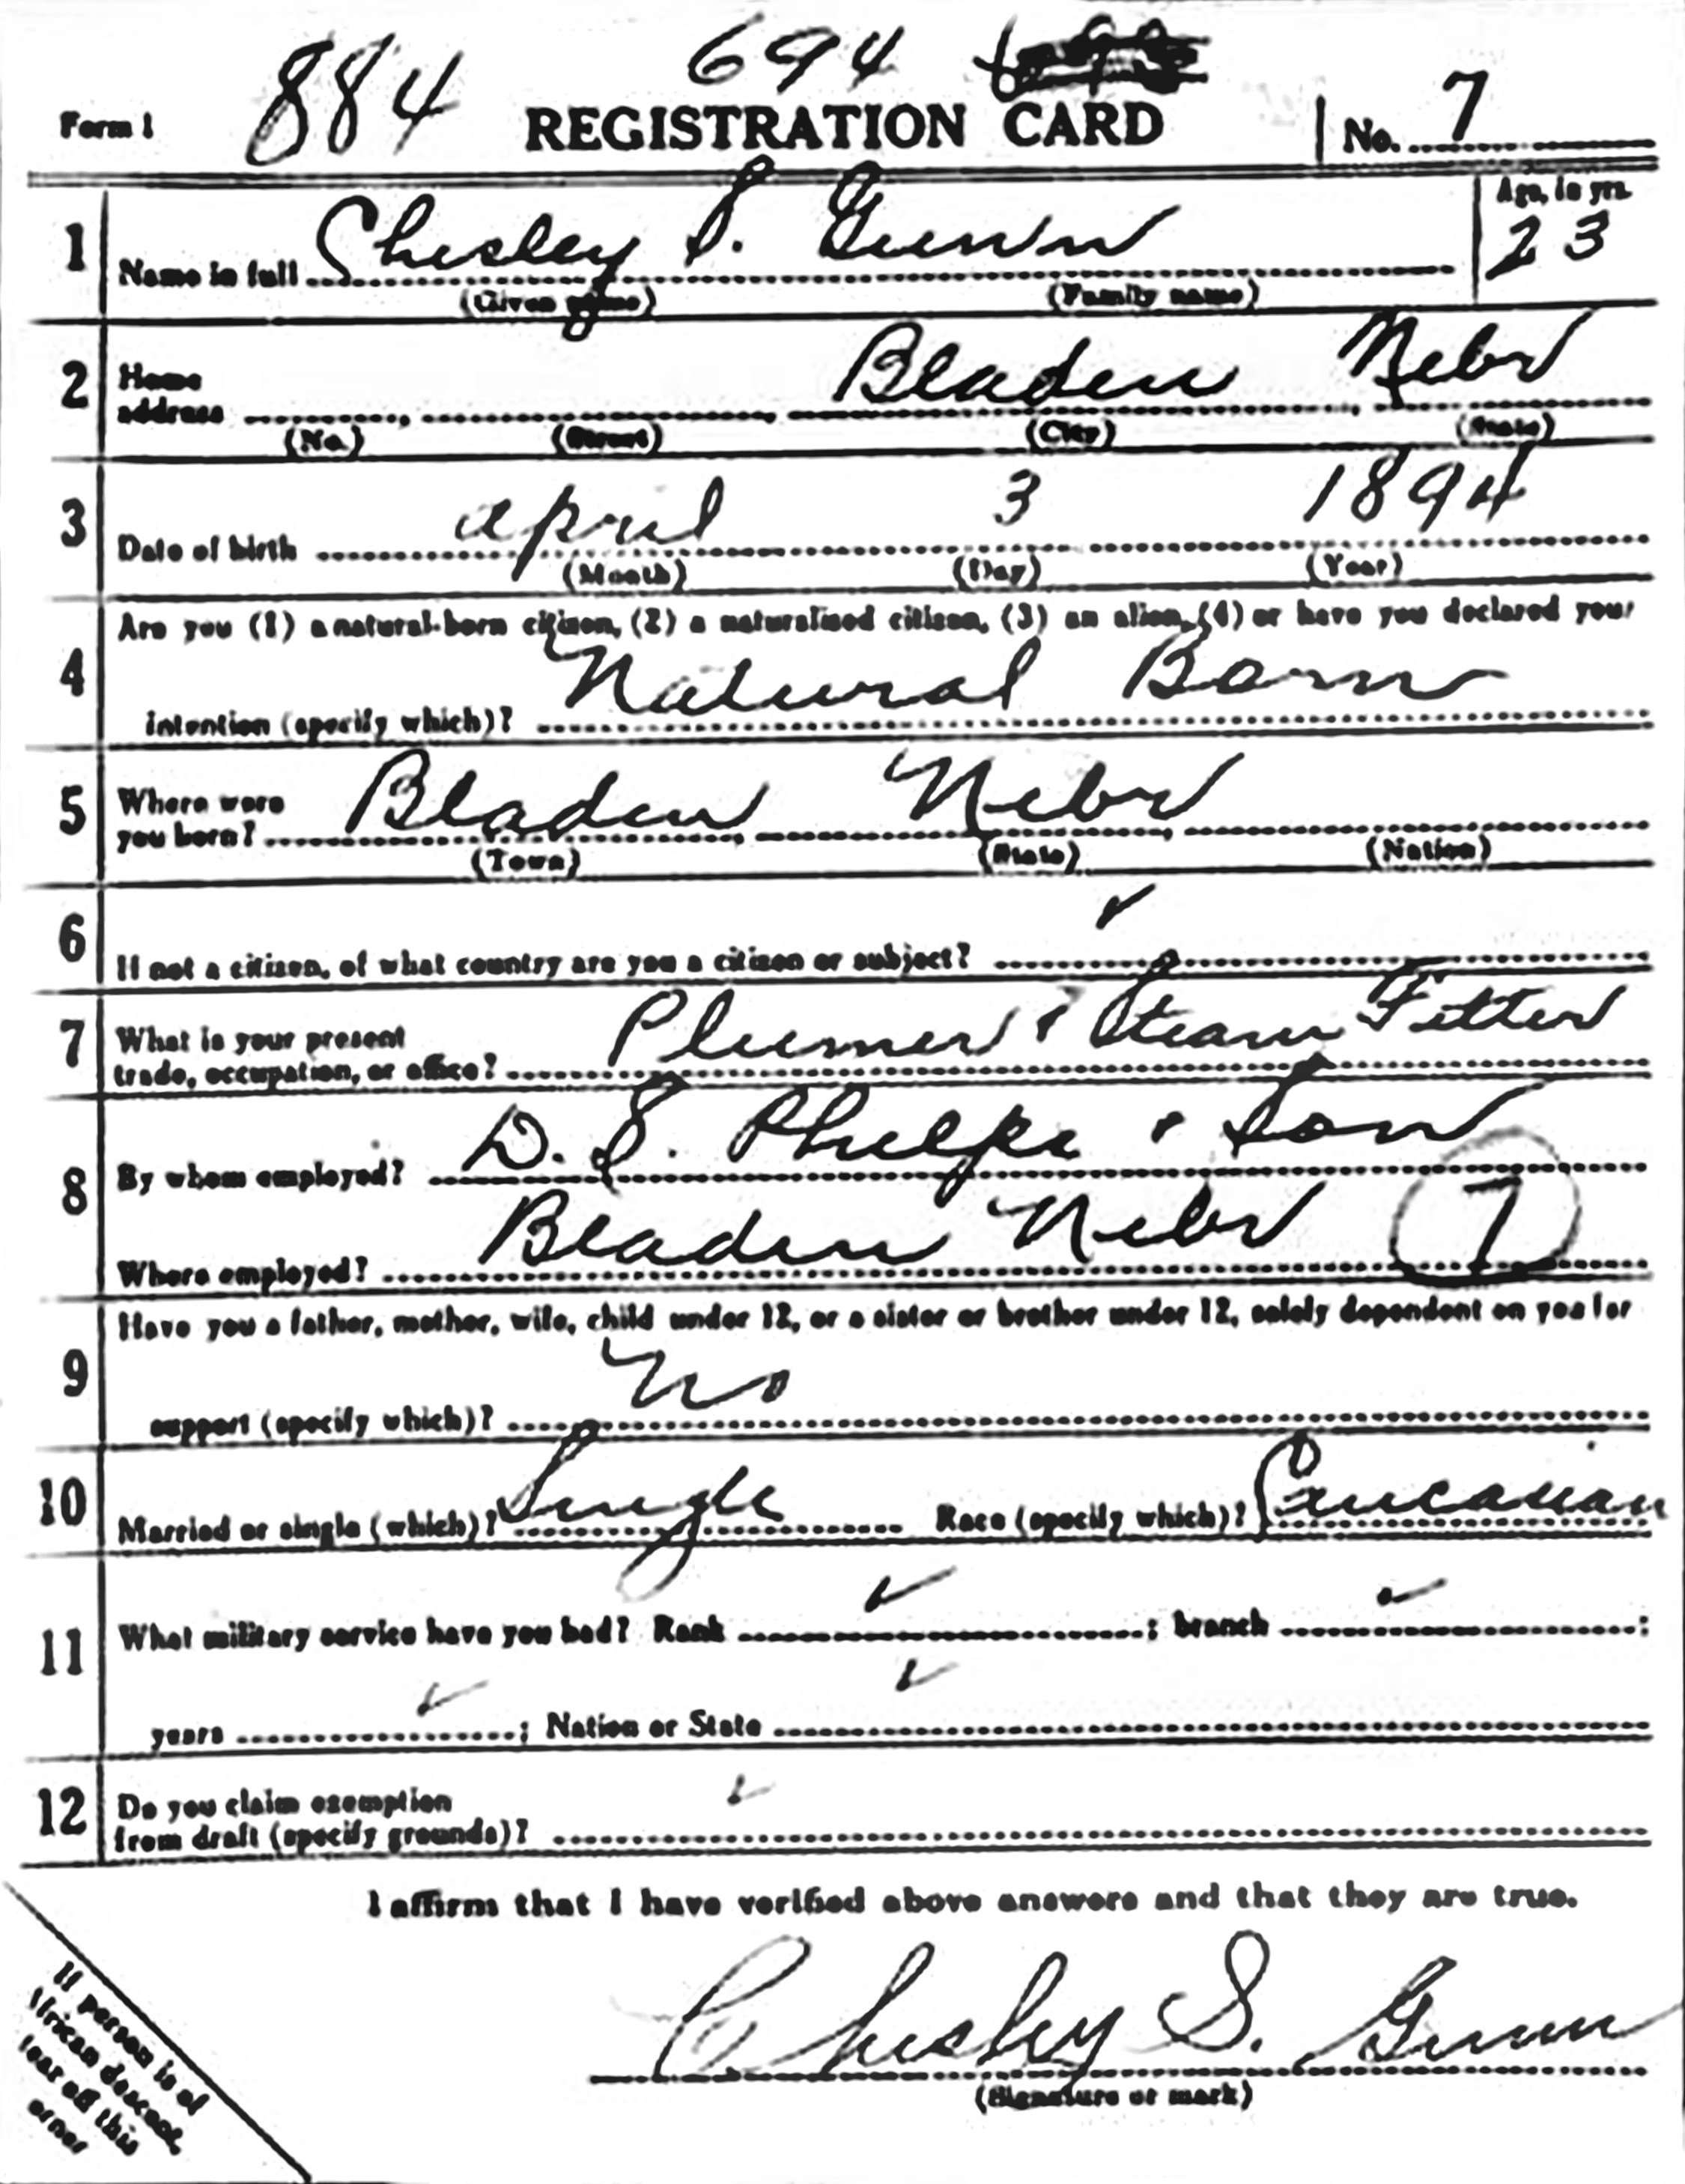 694
884
Form 1 REGISTRATION CARD No. 7
Age, in yrs.
1 Name in full Chesley S. Gunn 23
(Given name) (Family name)
2 Home address Bladen Nebr
(No.) (Street) (City) (State)
3 Date of birth april 3 1894
(Month) (Day) (Year)
Are you (1) a natural-born citizen, (2) a naturalized citizen, (3) an alien, (4) or have you declared your
4 intention (specify which)? Natural Born
5 Where were you born? Bladen Nebr
(Town) (State) (Nation)
6 If not a citizen, of what country are you a citizen or subject? ✓
7 What is your present trade, occupation, or office? Plumer & Steam Fitter
8 By whom employed? D. S. Phelps & Son
Where employed? Bladen Nebr 7
Have you a father, mother, wife, child under 12, or a sister or brother under 12, solely dependent on you for
9 support (specify which)? No
10 Married or single (which)? Single Race (specify which)? Caucasian
11 What military service have you had? Rank ✓ ; branch ✓ ;
years ✓ ; Nation or State ✓
12 Do you claim exemption from draft (specify grounds)? ✓
I affirm that I have verified above answers and that they are true.
Chesley S. Gunn
(Signature or mark)
If person is of
African descent,
tear off this
corner